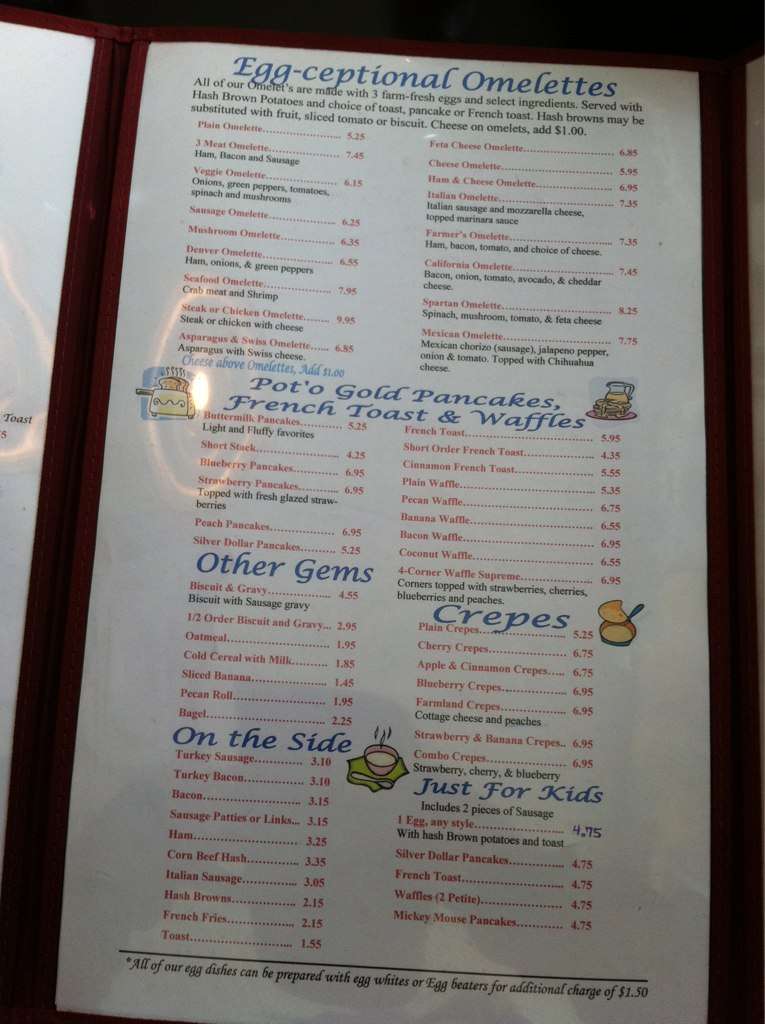 Egg-ceptional Omelettes
All of our Omelet's are made with 3 farm-fresh eggs and select ingredients. Served with
Hash Brown Potatoes and choice of toast, pancake or French toast. Hash browns may be
substituted with fruit, sliced tomato or biscuit. Cheese on omelets, add $1.00.
Plain Omelette........................ 5.25
3 Meat Omelette..................... 7.45
Ham, Bacon and Sausage
Veggie Omelette..................... 6.15
Onions, green peppers, tomatoes,
spinach and mushrooms
Sausage Omelette.................... 6.25
Mushroom Omelette................ 6.35
Denver Omelette..................... 6.55
Ham, onions, & green peppers
Seafood Omelette.................... 7.95
Crab meat and Shrimp
Steak or Chicken Omelette....... 9.95
Steak or chicken with cheese
Asparagus & Swiss Omelette..... 6.85
Asparagus with Swiss cheese.
Cheese above Omelettes, Add $1.00
Feta Cheese Omelette........................ 6.85
Cheese Omelette............................... 5.95
Ham & Cheese Omelette..................... 6.95
Italian Omelette................................ 7.35
Italian sausage and mozzarella cheese,
topped marinara sauce
Farmer's Omelette............................. 7.35
Ham, bacon, tomato, and choice of cheese.
California Omelette........................... 7.45
Bacon, onion, tomato, avocado, & cheddar
cheese.
Spartan Omelette.............................. 8.25
Spinach, mushroom, tomato, & feta cheese
Mexican Omelette............................. 7.75
Mexican chorizo (sausage), jalapeno pepper,
onion & tomato. Topped with Chihuahua
cheese.
Pot'o Gold Pancakes,
French Toast & Waffles
Buttermilk Pancakes............... 5.25
Light and Fluffy favorites
Short Stack........................... 4.25
Blueberry Pancakes................ 6.95
Strawberry Pancakes.............. 6.95
Topped with fresh glazed straw-
berries
Peach Pancakes..................... 6.95
Silver Dollar Pancakes........... 5.25
French Toast................................. 5.95
Short Order French Toast................ 4.35
Cinnamon French Toast................... 5.55
Plain Waffle.................................. 5.35
Pecan Waffle................................. 6.75
Banana Waffle............................... 6.55
Bacon Waffle................................. 6.95
Coconut Waffle.............................. 6.55
4-Corner Waffle Supreme................ 6.95
Corners topped with strawberries, cherries,
blueberries and peaches.
Other Gems
Biscuit & Gravy..................... 4.55
Biscuit with Sausage gravy
1/2 Order Biscuit and Gravy... 2.95
Oatmeal............................... 1.95
Cold Cereal with Milk............ 1.85
Sliced Banana....................... 1.45
Pecan Roll............................ 1.95
Bagel................................... 2.25
Crepes
Plain Crepes...................... 5.25
Cherry Crepes.................... 6.75
Apple & Cinnamon Crepes..... 6.75
Blueberry Crepes................ 6.95
Farmland Crepes................. 6.95
Cottage cheese and peaches
Strawberry & Banana Crepes.. 6.95
Combo Crepes.................... 6.95
Strawberry, cherry, & blueberry
On the Side
Turkey Sausage............... 3.10
Turkey Bacon.................. 3.10
Bacon............................ 3.15
Sausage Patties or Links... 3.15
Ham.............................. 3.25
Corn Beef Hash............... 3.35
Italian Sausage................ 3.05
Hash Browns................... 2.15
French Fries.................... 2.15
Toast............................. 1.55
Just For Kids
Includes 2 pieces of Sausage
1 Egg, any style..................... 4.75
With hash Brown potatoes and toast
Silver Dollar Pancakes............. 4.75
French Toast......................... 4.75
Waffles (2 Petite).................... 4.75
Mickey Mouse Pancakes........... 4.75
*All of our egg dishes can be prepared with egg whites or Egg beaters for additional charge of $1.50
Toast
5